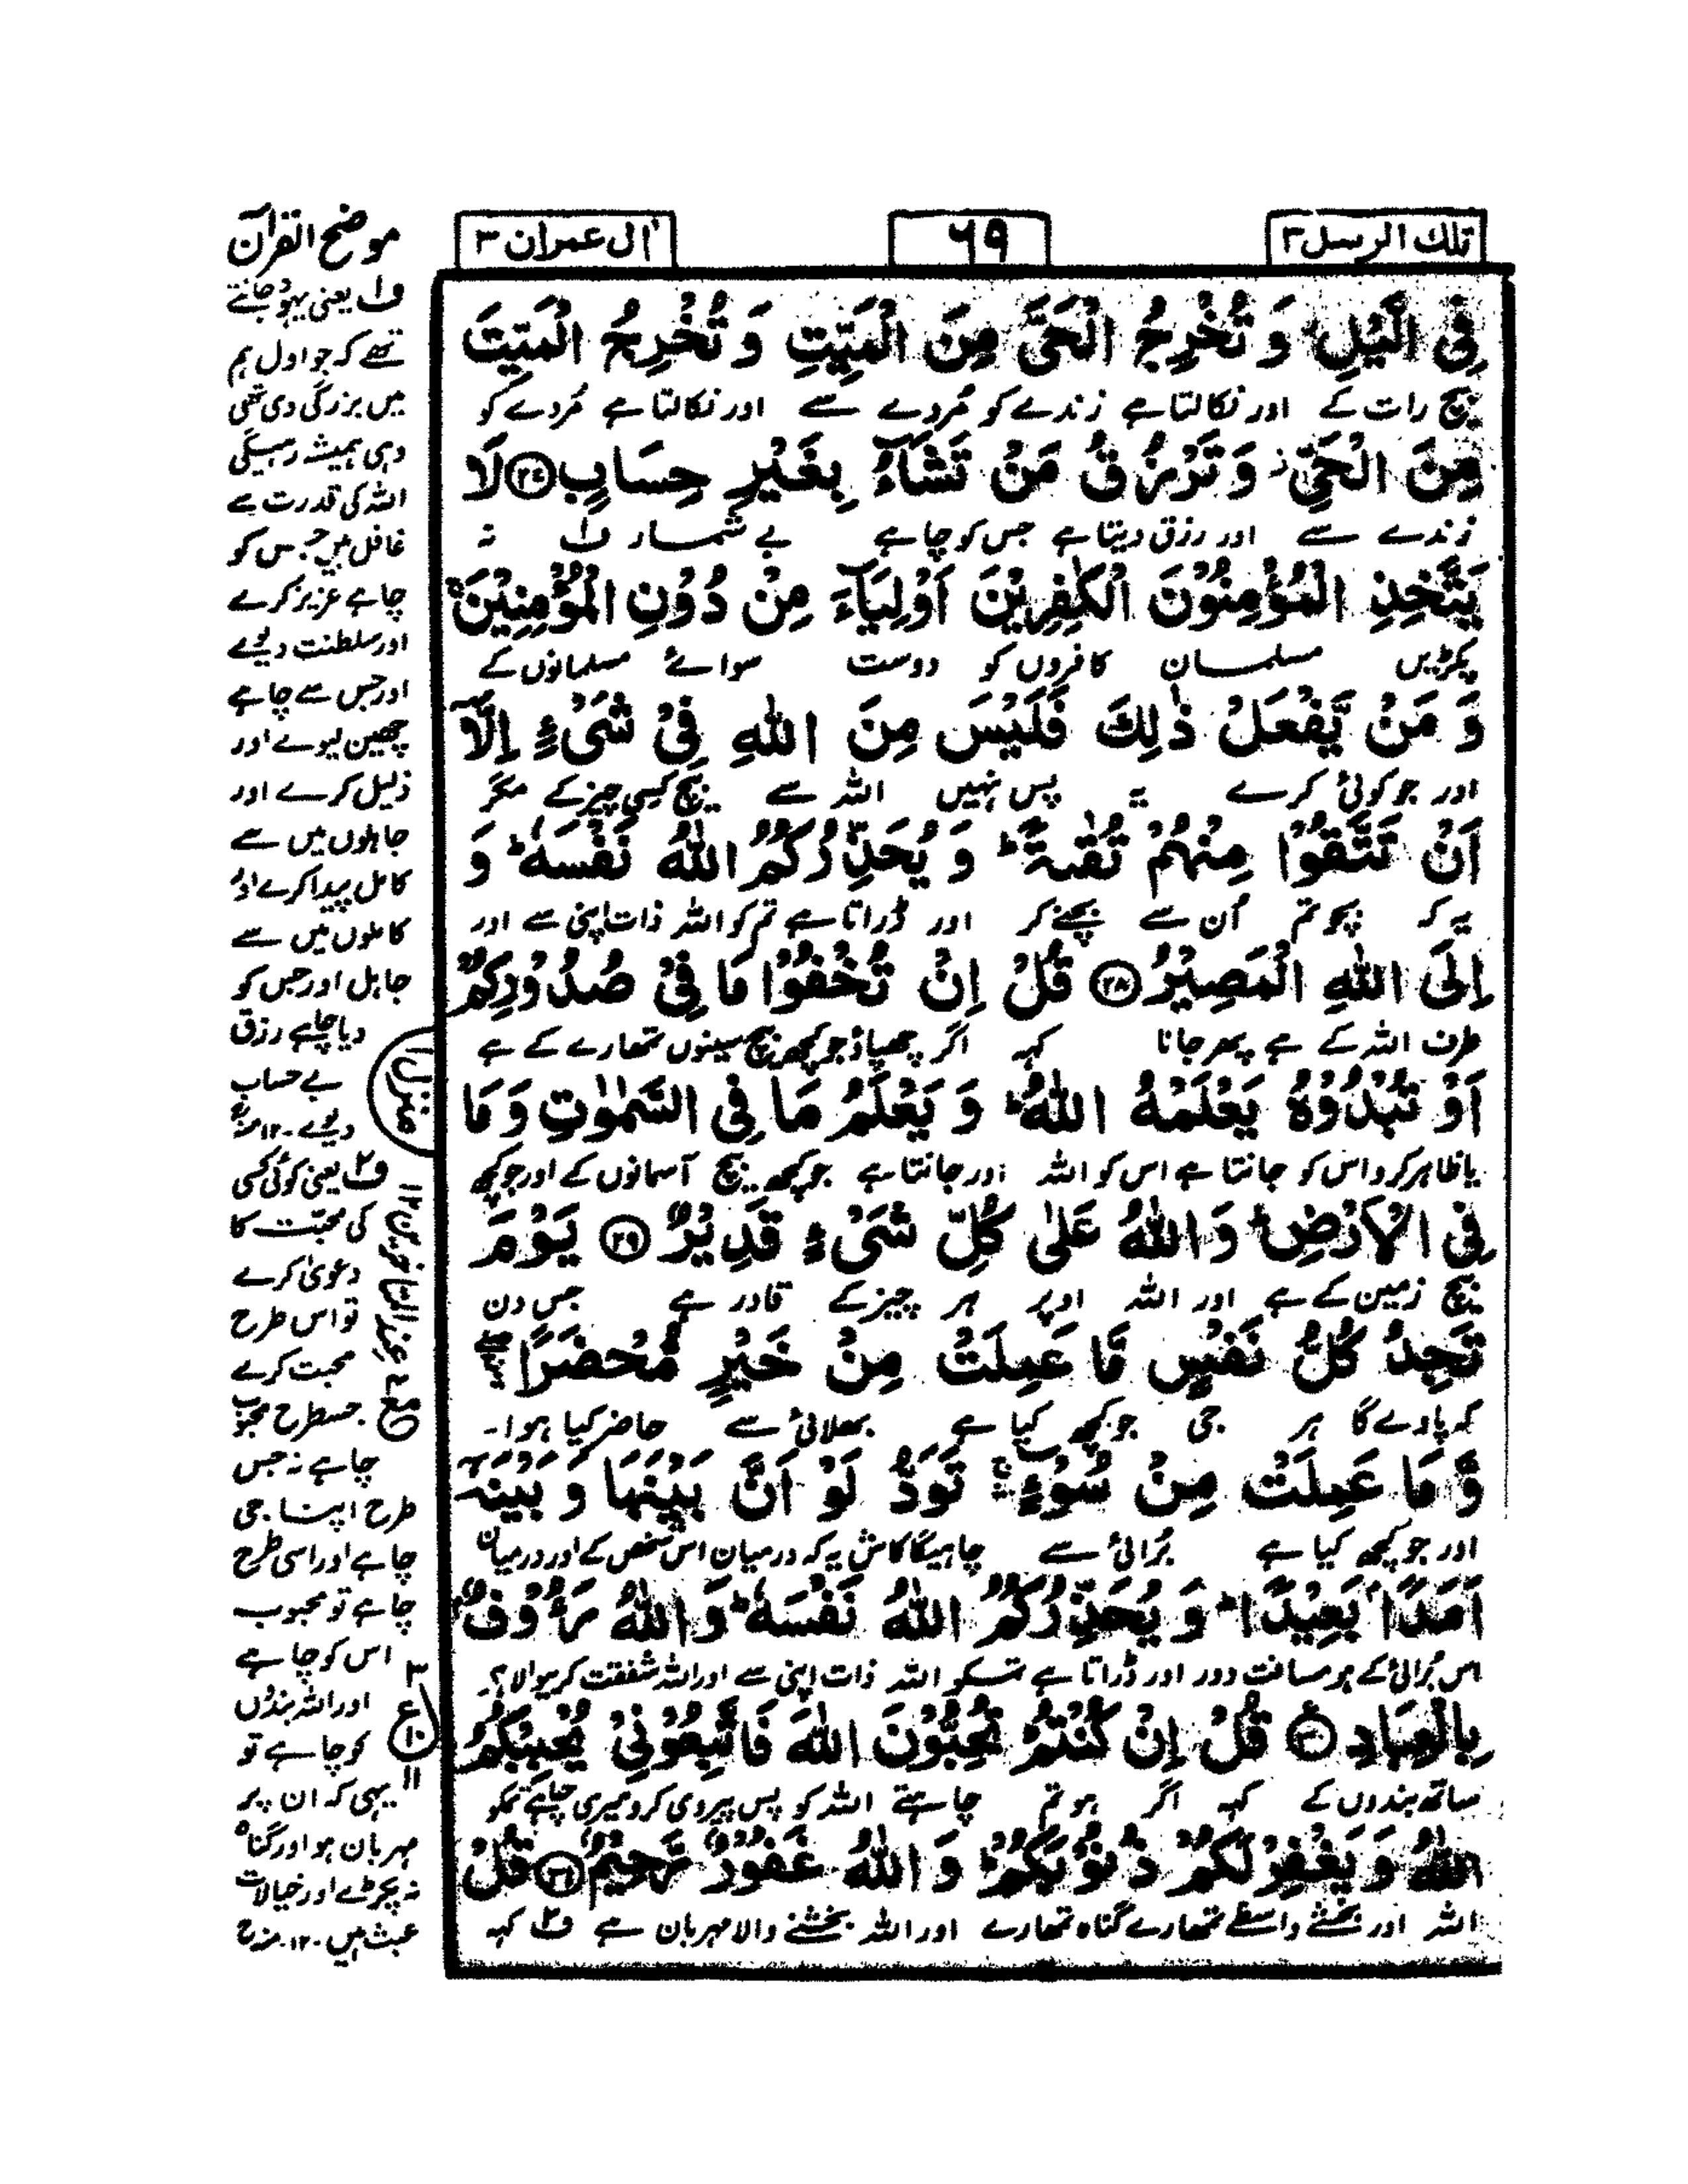 تلك الرسل ٣
٦٩
اٰل عمران ٣
فِى الَّيْلِ وَ تُخْرِجُ الْحَىَّ مِنَ الْمَيِّتِ وَ تُخْرِجُ الْمَيِّتَ
بیچ رات کے اور نکالتا ہے زندے کو مُردے سے اور نکالتا ہے مُردے کو
مِنَ الْحَىِّ وَ تَرْزُقُ مَنْ تَشَآءُ بِغَيْرِ حِسَابٍ ﴿۲۷﴾ لَا
زندے سے اور رزق دیتا ہے جس کو چاہے بے شمار ف۱ نہ
يَتَّخِذِ الْمُؤْمِنُوْنَ الْكٰفِرِيْنَ اَوْلِيَآءَ مِنْ دُوْنِ الْمُؤْمِنِيْنَ ۚ
پکڑیں مسلمان کافروں کو دوست سوائے مسلمانوں کے
وَ مَنْ يَّفْعَلْ ذٰلِكَ فَلَيْسَ مِنَ اللّٰهِ فِىْ شَىْءٍ اِلَّآ
اور جو کوئی کرے یہ پس نہیں اللہ سے بیچ کسی چیز کے مگر
اَنْ تَتَّقُوْا مِنْهُمْ تُقٰىةً ؕ وَ يُحَذِّرُكُمُ اللّٰهُ نَفْسَهٗ ؕ وَ
یہ کہ بچو تم اُن سے بچنے کر اور ڈراتا ہے تم کو اللہ ذات اپنی سے اور
اِلَى اللّٰهِ الْمَصِيْرُ ﴿۲۸﴾ قُلْ اِنْ تُخْفُوْا مَا فِىْ صُدُوْرِكُمْ
طرف اللہ کے ہے پھر جانا کہہ اگر چھپاؤ جو کچھ بیچ سینوں تمھارے کے ہے
اَوْ تُبْدُوْهُ يَعْلَمْهُ اللّٰهُ ؕ وَ يَعْلَمُ مَا فِى السَّمٰوٰتِ وَ مَا
یا ظاہر کرو اس کو جانتا ہے اس کو اللہ اور جانتا ہے جو کچھ بیچ آسمانوں کے اور جو کچھ
فِى الْاَرْضِ ؕ وَ اللّٰهُ عَلٰى كُلِّ شَىْءٍ قَدِيْرٌ ﴿۲۹﴾ يَوْمَ
بیچ زمین کے ہے اور اللہ اوپر ہر چیز کے قادر ہے جس دن
تَجِدُ كُلُّ نَفْسٍ مَّا عَمِلَتْ مِنْ خَيْرٍ مُّحْضَرًا
کہ پاوے گا ہر جی جو کچھ کیا ہے بھلائی سے حاضر کیا ہوا۔
وَّ مَا عَمِلَتْ مِنْ سُوْٓءٍ تَوَدُّ لَوْ اَنَّ بَيْنَهَا وَ بَيْنَهٗٓ
اور جو کچھ کیا ہے بُرائی سے چاہیگا کاش یہ کہ درمیان اس شخص کے اور درمیان
اَمَدًۢا بَعِيْدًا ؕ وَ يُحَذِّرُكُمُ اللّٰهُ نَفْسَهٗ ؕ وَ اللّٰهُ رَءُوْفٌۢ
اس بُرائی کے ہو مسافت دور اور ڈراتا ہے تمکو اللہ ذات اپنی سے اور اللہ شفقت کرنیوالا ہے
بِالْعِبَادِ ﴿۳۰﴾ قُلْ اِنْ كُنْتُمْ تُحِبُّوْنَ اللّٰهَ فَاتَّبِعُوْنِىْ يُحْبِبْكُمُ
ساتھ بندوں کے کہہ اگر ہو تم چاہتے اللہ کو پس پیروی کرو میری چاہے تمکو
اللّٰهُ وَ يَغْفِرْ لَكُمْ ذُنُوْبَكُمْ ؕ وَ اللّٰهُ غَفُوْرٌ رَّحِيْمٌ ﴿۳۱﴾ قُلْ
اللہ اور بخشے واسطے تمھارے گناہ تمھارے اور اللہ بخشنے والا مہربان ہے ف۲ کہہ
موضح القرآن
ف۱ یعنی یہود جانتے
تھے کہ جو اول ہم
میں بزرگی دی تھی
وہی ہمیشہ رہیگی
اللہ کی قدرت سے
غافل ہیں جس کو
چاہے عزیز کرے
اور سلطنت دیوے
اور جس سے چاہے
چھین لیوے اور
ذلیل کرے اور
جاہلوں میں سے
کامل پیدا کرے اور
کاملوں میں سے
جاہل اور جس کو
دیا چاہے رزق
بے حساب
دیوے ۱۲
ف۲ یعنی کوئی کسی
کی محبّت کا
دعویٰ کرے
تو اس طرح
محبت کرے
جسطرح محبوب
چاہے نہ جس
طرح اپنا جی
چاہے اور اسی طرح
چاہے تو محبوب
اس کو چاہے
اور اللہ بندوں
کو چاہے تو
یہی کہ ان پر
مہربان ہو اور گناہ
نہ پکڑے اور خیالات
عبث ہیں ۱۲ منہ
منزل ۱
۳
ع
۱۰
۱۱